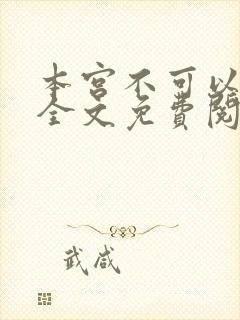 本宫不可以
全文免费阅
武咸